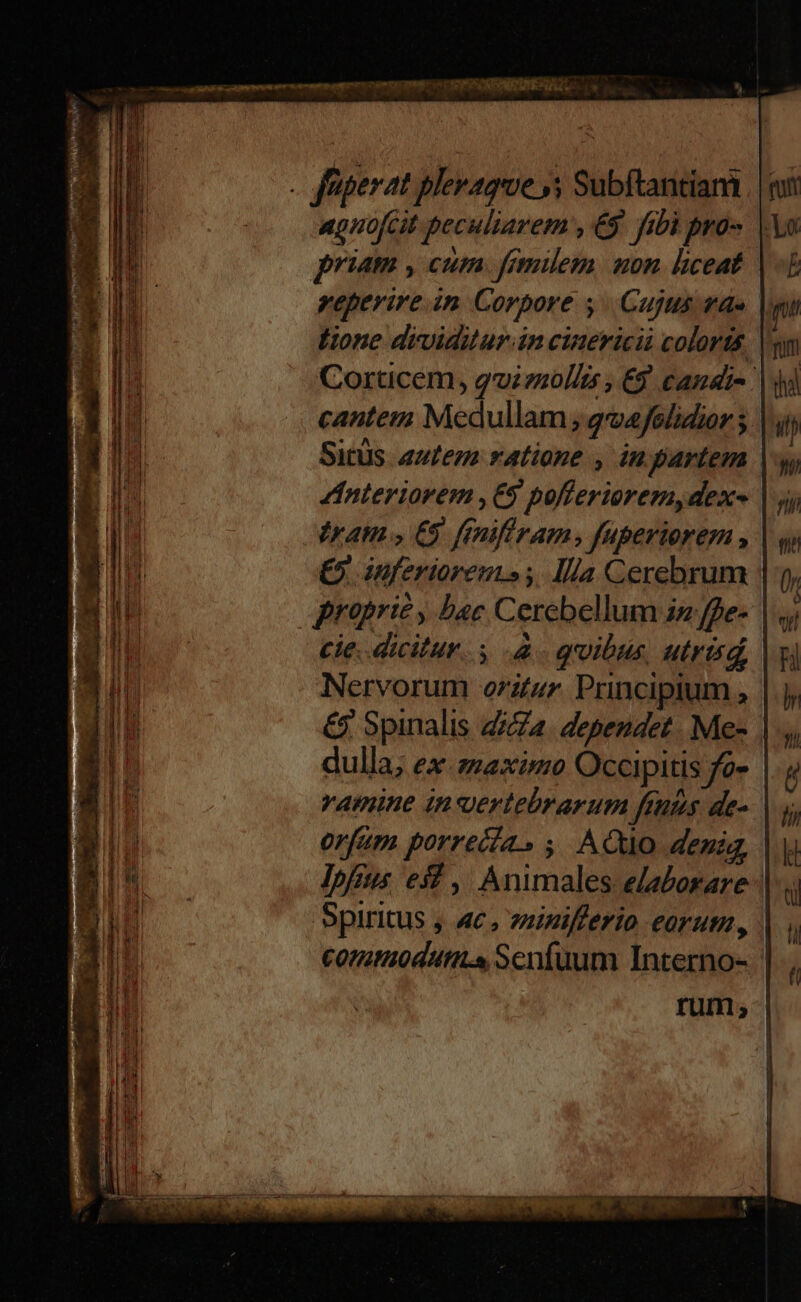 ſuperat pleraqve; Subſtantiam
agnoſcit peculiarem, & ſibi pro-
priam, cum ſimilem non liceat
reperire in Corpore; Cujus ra-
tione dividitur in cinericii coloris
Corticem, qvi mollis, & candi-
cantem Medullam, qvæ ſolidior;
Sitûs autem ratione, in partem
Anteriorem, & poſteriorem, dex-
tram, & ſiniſtram, ſuperiorem,
& inferiorem; Illa Cerebrum
propriè, hæc Cerebellum in ſpe-
cie dicitur; à qvibus utrisq́;
Nervorum oritur Principium,
& Spinalis dicta dependet Me-
dulla; ex maximo Occipitis fo-
ramine in vertebrarum ſinûs de-
orſum porrecta; Actio deniq́;
Ipſius eſt, Animales elaborare
Spiritus, ac, miniſterio eorum,
commodum Senſuum Interno-
rum;